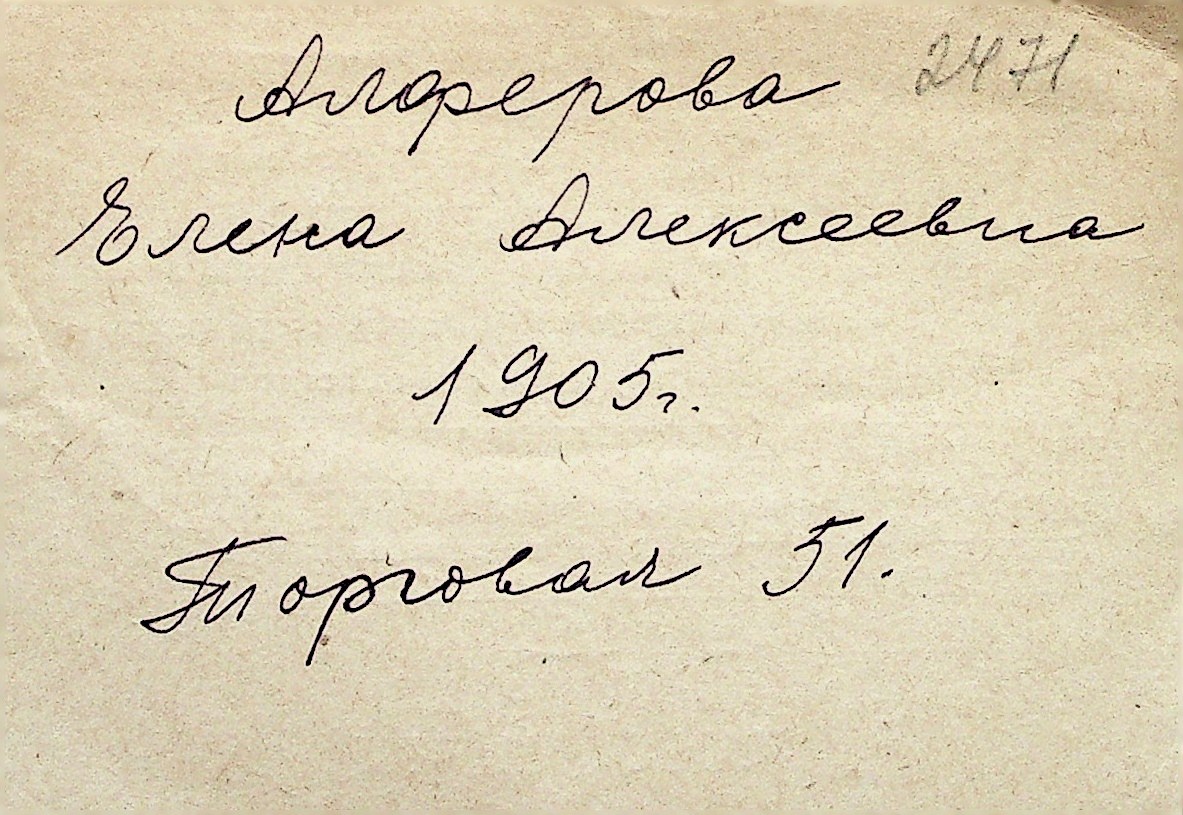 Алферова 2471
Елена Алексеевна
1905г.
Торговая 51.